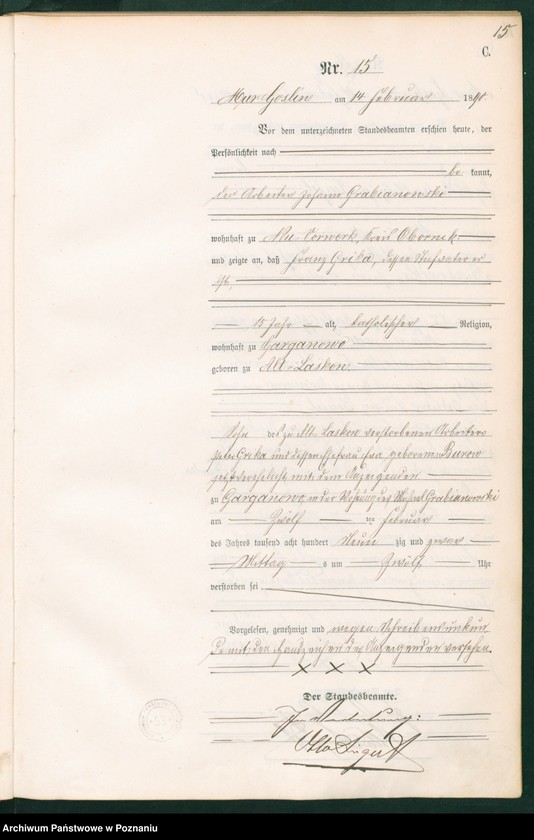 15
C.
Nr. 15
Mur. Goslin am 14 Februar 1890.
Vor dem unterzeichneten Standesbeamten erschien heute, der
Persönlichkeit nach
be kannt,
der Arbeiter Johann Grabianowski
wohnhaft zu Neu-Vorwerk, Kreis Obornik
und zeigte an, daß Franz Grika, dessen Stiefvater er
ist,
15 Jahr alt, katholischer Religion,
wohnhaft zu Garganowo
geboren zu Alt-Laskon
Sohn des zu Alt-Laskon verstorbenen Arbeiters
Peter Grika und dessen Ehefrau Eva geborenen Burow
jetzt verehelicht mit dem Anzeigenden
zu Garganowo in der Behausung des Grabianowski
am Zwölf ten Februar
des Jahres tausend acht hundert Neun zig und zwar
Mittag s um Zwölf Uhr
verstorben sei
Vorgelesen, genehmigt und wegen Schreibensunkun
de mit den Handzeichen des Anzeigenden versehen.
X X X
Der Standesbeamte.
In Vertretung:
Otto
Archiwum Państwowe w Poznaniu